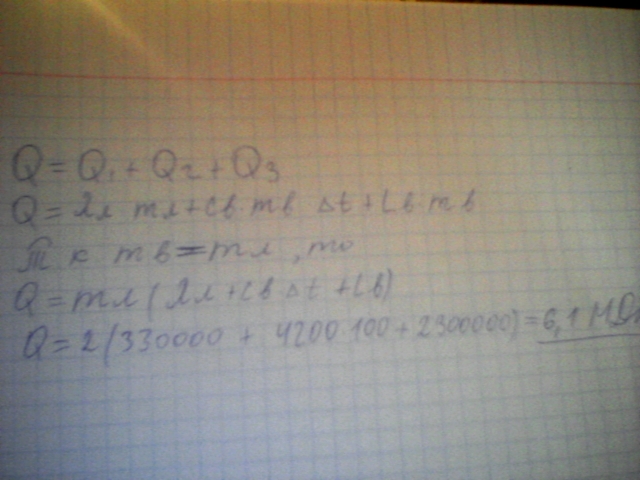 Q = Q1 + Q2 + Q3
Q = λл mл + cв mв Δt + Lв mв
т к mв = mл, то
Q = mл (λл + cв Δt + Lв)
Q = 2 (330000 + 4200 100 + 2300000) = 6,1 МДж